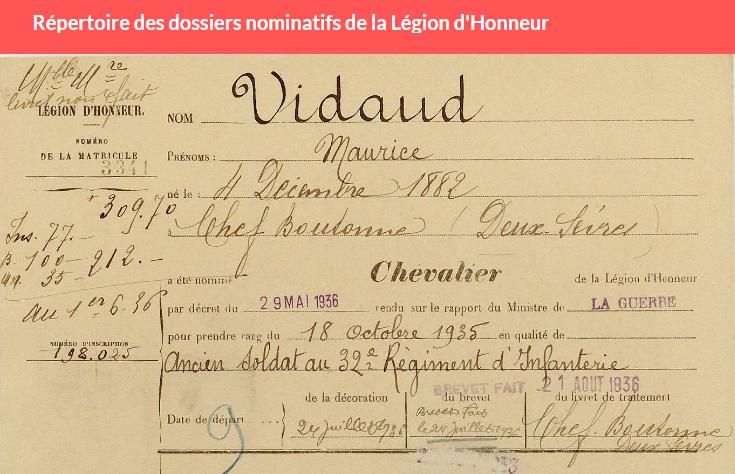 Répertoire des dossiers nominatifs de la Légion d'Honneur
LÉGION D'HONNEUR.
NUMÉRO
DE LA MATRICULE
3341
309.70
Ins. 77.-
B. 100 - 212.-
35
au 1er 6.36
NUMÉRO D'INSCRIPTION
198.025
NOM Vidaud
PRÉNOMS : Maurice
né le : 4 Décembre 1882
Chef Boutonne (Deux-Sèvres)
a été nommé Chevalier de la Légion d'Honneur
par décret du 29 MAI 1936 rendu sur le rapport du Ministre de LA GUERRE
pour prendre rang du 18 Octobre 1935 en qualité de
Ancien Soldat au 32e Régiment d'Infanterie
BREVET FAIT 21 AOUT 1936
de la décoration du brevet du livret de traitement
Date de départ 24 juillet 1936 Brevet Fait Chef-Boutonne
le 24 juillet 1936 Deux Sèvres
9